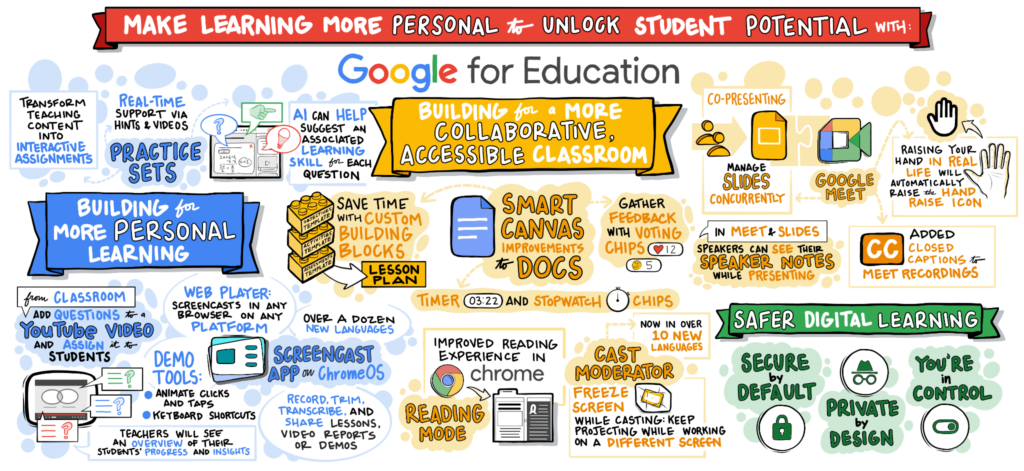 MAKE LEARNING MORE PERSONAL to UNLOCK STUDENT POTENTIAL WITH:
Google for Education
TRANSFORM
TEACHING
CONTENT
INTO
INTERACTIVE
ASSIGNMENTS
REAL-TIME
SUPPORT VIA
HINTS & VIDEOS
PRACTICE
SETS
?
AI CAN HELP
SUGGEST AN
ASSOCIATED
LEARNING
SKILL for EACH
QUESTION
BUILDING for a MORE
COLLABORATIVE,
ACCESSIBLE CLASSROOM
CO-PRESENTING
MANAGE
SLIDES
CONCURRENTLY
GOOGLE
MEET
RAISING YOUR
HAND IN REAL
LIFE WILL
AUTOMATICALLY
RAISE the HAND
RAISE ICON
BUILDING for
MORE PERSONAL
LEARNING
TEMPLATE
TEMPLATE
TEMPLATE
SAVE TIME
WITH CUSTOM
BUILDING
BLOCKS
LESSON
PLAN
SMART
CANVAS
IMPROVEMENTS
to DOCS
GATHER
FEEDBACK
WITH VOTING
CHIPS
12
5
IN MEET & SLIDES
SPEAKERS CAN SEE THEIR
SPEAKER NOTES
WHILE PRESENTING
CC
ADDED
CLOSED
CAPTIONS to
MEET RECORDINGS
TIMER 03:22 AND STOPWATCH CHIPS
from CLASSROOM
ADD QUESTIONS to a
YouTube VIDEO
AND ASSIGN it to
STUDENTS
WEB PLAYER:
SCREENCASTS IN ANY
BROWSER ON ANY
PLATFORM
OVER A DOZEN
NEW LANGUAGES
SCREENCAST
APP on ChromeOS
DEMO
TOOLS:
ANIMATE CLICKS
AND TAPS
KEYBOARD SHORTCUTS
?
?
?
TEACHERS WILL SEE
AN OVERVIEW OF THEIR
STUDENTS' PROGRESS AND INSIGHTS
RECORD, TRIM,
TRANSCRIBE, AND
SHARE LESSONS,
VIDEO REPORTS
OR DEMOS
IMPROVED READING
EXPERIENCE IN
chrome
READING
MODE
A
NOW IN OVER
10 NEW
LANGUAGES
CAST
MODERATOR
FREEZE
SCREEN
WHILE CASTING: KEEP
PROJECTING WHILE WORKING
ON A DIFFERENT SCREEN
SAFER DIGITAL LEARNING
SECURE
by
DEFAULT
PRIVATE
by
DESIGN
YOU'RE
in
CONTROL